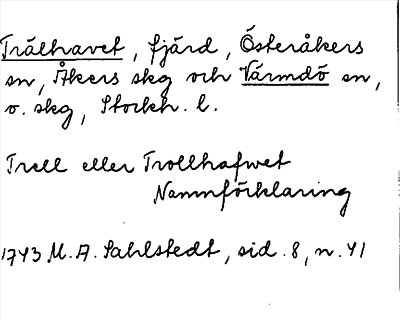 Trälhavet, fjärd, Österåkers
sn, Åkers skg och Värmdö sn,
o. skg, Stockh. l.
Trell eller Trollhafwet
Namnförklaring
1743 M. A. Sahlstedt, sid. 8, n. 41